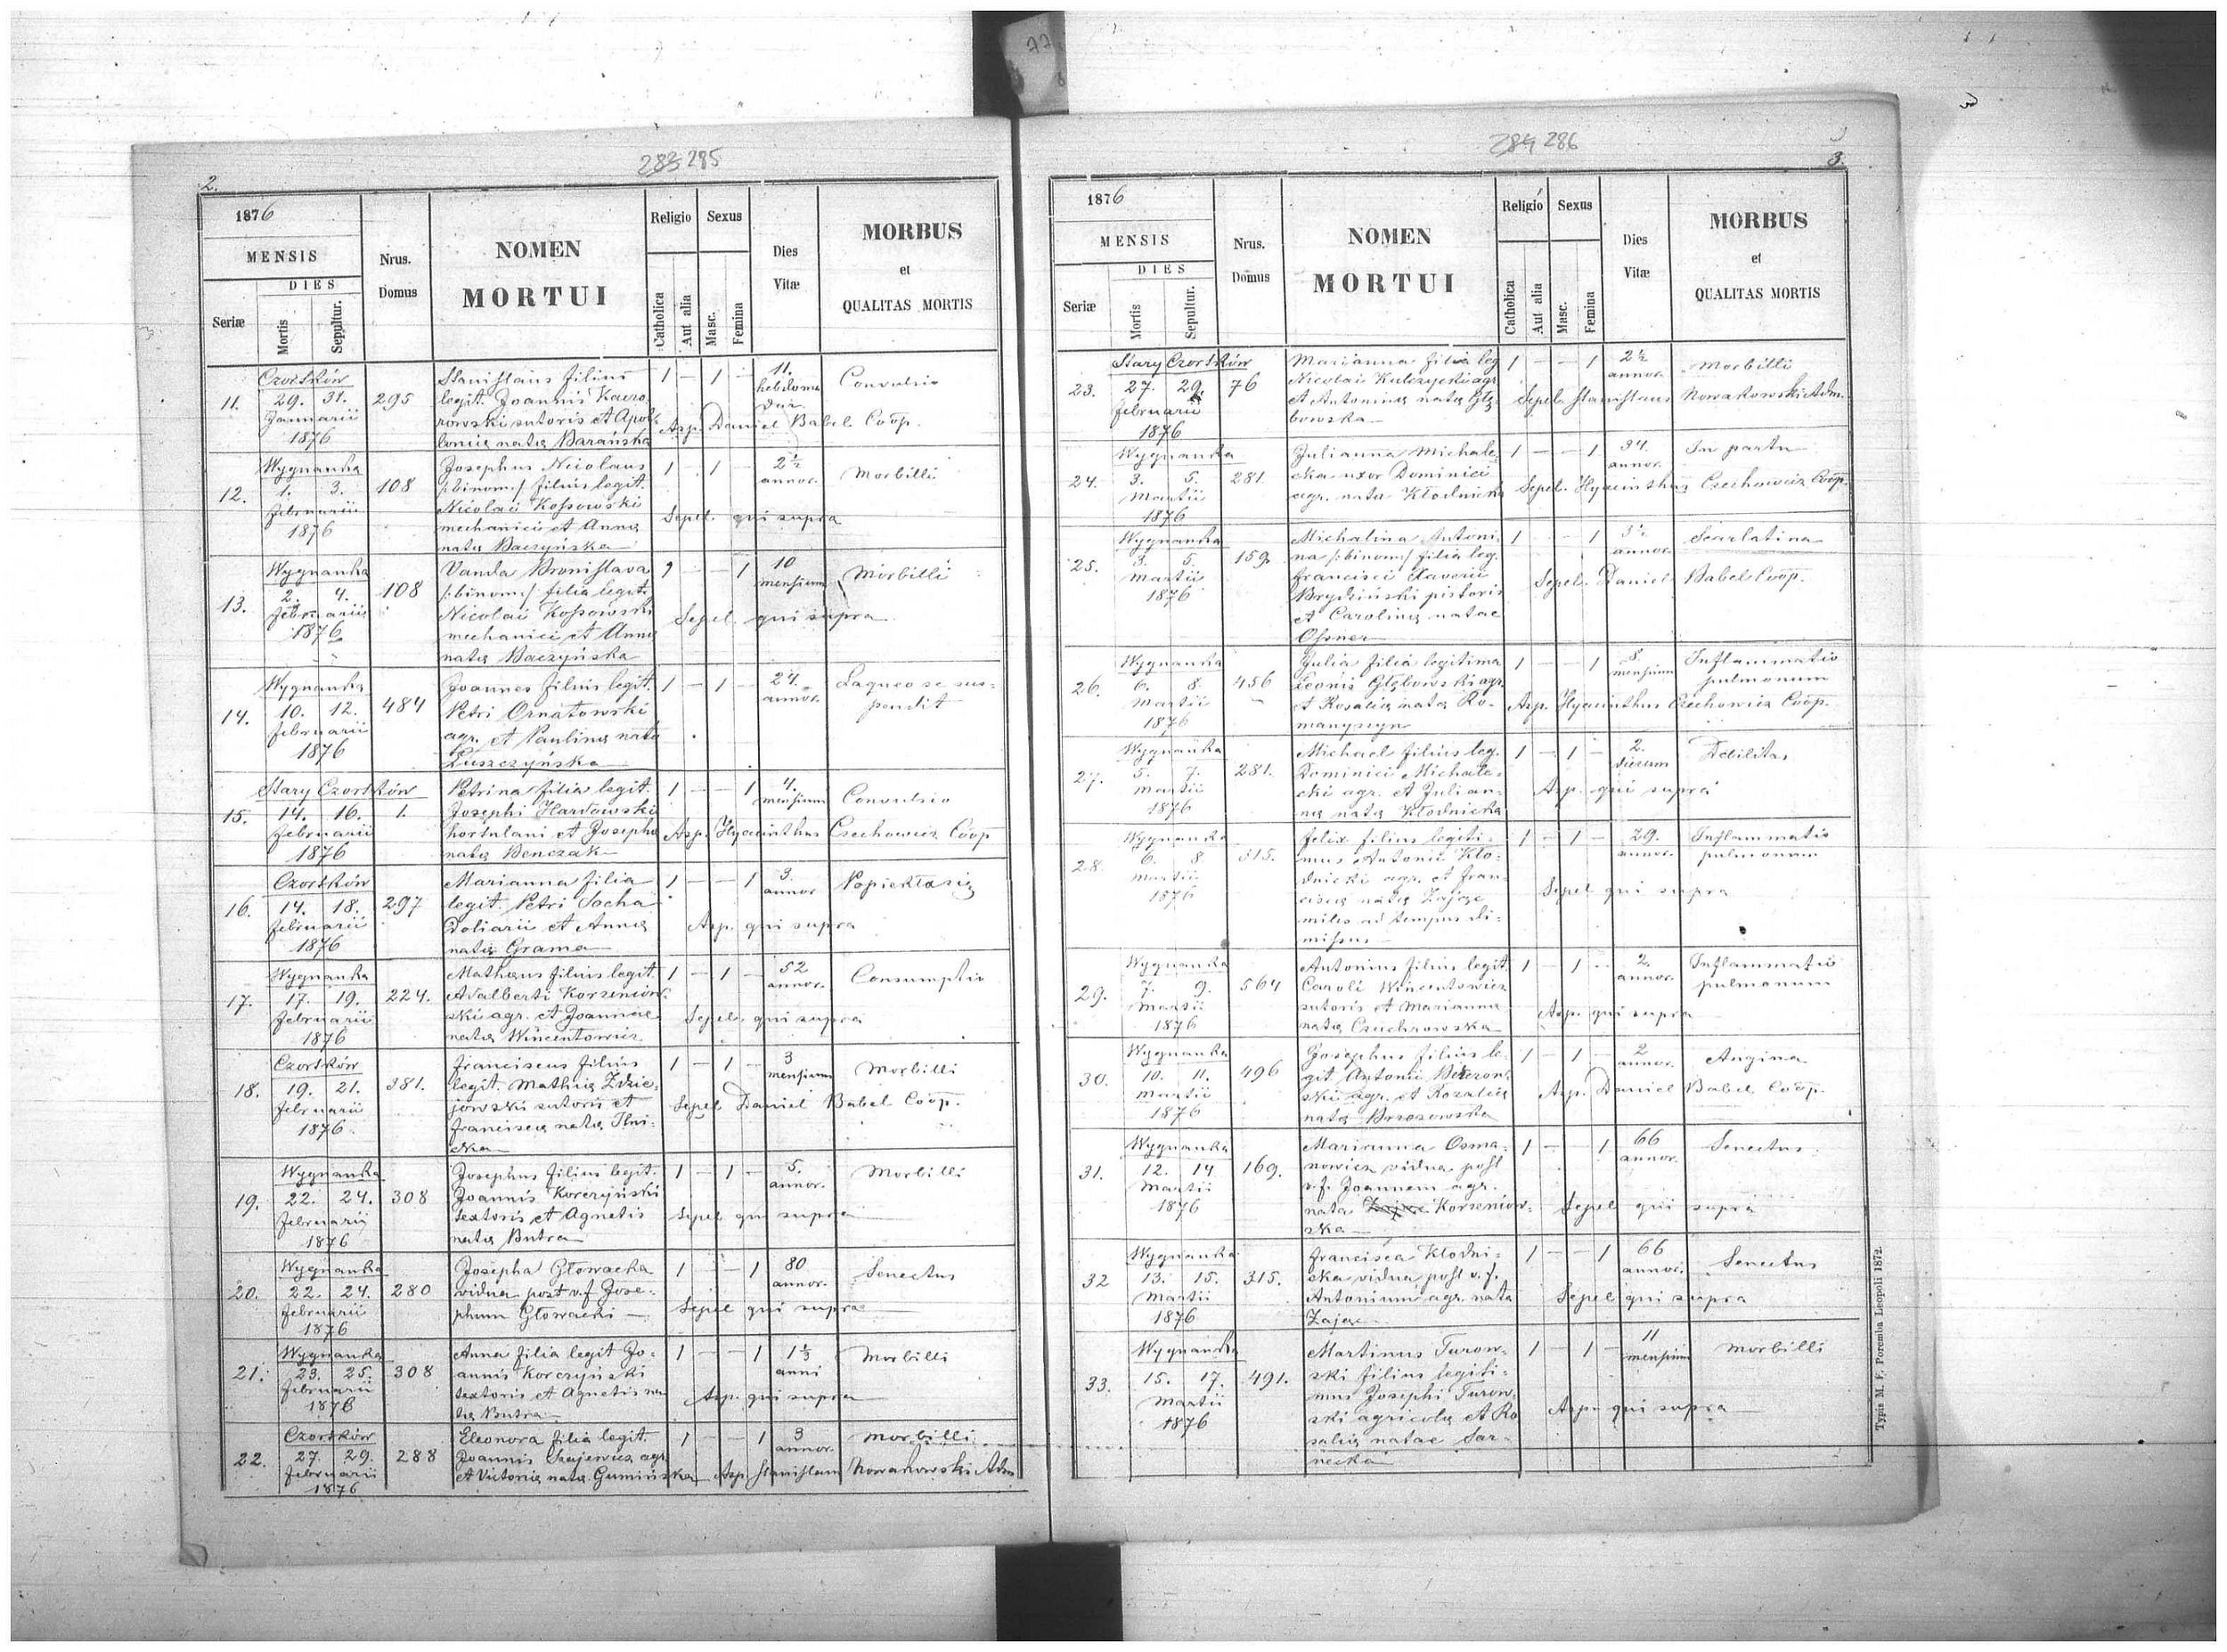 77
283 285
2.
1876
MENSIS
DIES
Seriæ
Mortis
Sepultur.
Nrus.
Domus
NOMEN
MORTUI
Religio
Catholica
Aut alia
Sexus
Masc.
Femina
Dies
Vitæ
MORBUS
et
QUALITAS MORTIS
Czortków
11. 29. 31. 295
Januarii
1876
Stanislaus filius
legit. Joannis Kaczo
rowski sutoris et Apol
loniæ natæ Barańska
1 — 1 —
11.
hebdoma
dar.
Convulsio
Asp. Daniel Babel Coop.
Wygnanka
12. 1. 3. 108
Februarii
1876
Josephus Nicolaus
/:binom:/ filius legit.
Nicolai Kossowski
mechanici et Annæ
natæ Baczyńska
1 1
2½
annor.
Morbilli
Sepel. qui supra
Wygnanka
13. 2. 4. 108
Februarii
1876
Vanda Bronislava
/:binom:/ filia legit.
Nicolai Kossowski
mechanici et Annæ
natæ Baczyńska
1 — — 1
10
mensium
Morbilli
Sepel. qui supra
Wygnanka
14. 10. 12. 484
Februarii
1876
Joannes filius legit.
Petri Ornatowski
agr. et Paulinæ nata
Łuszczyńska
1 — 1 —
24.
annor.
Laqueo se sus=
pendit
Stary Czortków
15. 14. 16. 1.
Februarii
1876
Petrina filia legit.
Josephi Hardowski
hortulani et Josepha
natæ Benczak
1 — — 1
4.
mensium
Convulsio
Asp. Hyacinthus Czechowicz Coop
Czortków
16. 14. 18. 297
Februarii
1876
Marianna filia
legit. Petri Socha
Doliarii et Annæ
natæ Grama
1 — — 1
3.
annor
Popiekła się
Asp. qui supra
Wygnanka
17. 17. 19. 224.
Februarii
1876
Mathæus filius legit.
Adalberti Korzeniow
ski agr. et Joannae
natæ Wincentowicz
1 — 1 —
52
annor.
Consumptio
Sepel. qui supra
Czortków
18. 19. 21. 381.
Februarii
1876
Franciscus filius
legit. Mathiæ Zdzie=
jowski sutoris et
Franciscæ natæ Ilni=
cka
1 — 1 —
3
mensium
Morbilli
Sepel Daniel Babel Coop.
Wygnanka
19. 22. 24. 308
Februarii
1876
Josephus filius legit.
Joannis Korczyński
textoris et Agnetis
natæ Butra
1 — 1 —
5.
annor.
Morbilli
Sepel qui supra
Wygnanka
20. 22. 24. 280
Februarii
1876
Josepha Głowacka
vidua post v.f Jose=
phum Głowacki —
1 — 1
80
annor.
Senectus
Sepel qui supra
Wygnanka
21. 23. 25. 308
Februarii
1876
Anna filia legit Jo=
annis Korczyński
textoris et Agnetis na
tæ Butra
1 — — 1
1⅓
anni
Morbilli
Asp. qui supra
Czortków
22. 27. 29. 288
Februarii
1876
Eleonora filia legit.
Joannis Szajewicz agr
et Victoriæ natæ Gumińska
1 — — 1
3
annor.
Morbilli
Asp. Stanislaus Nowakowski Adm
284 286
3.
1876
MENSIS
DIES
Seriæ
Mortis
Sepultur.
Nrus.
Domus
NOMEN
MORTUI
Religio
Catholica
Aut alia
Sexus
Masc.
Femina
Dies
Vitæ
MORBUS
et
QUALITAS MORTIS
Stary Czortków
23. 27. 29. 76
Februarii
1876
Marianna filia leg
Nicolai Kulczycki agr
et Antoninæ natæ Głę=
bowska
1 — — 1
2½
annor.
Morbilli
Sepel. Stanislaus Nowakowski Adm.
Wygnanka
24. 3. 5. 281.
Martii
1876
Julianna Michale
cka uxor Dominici
agr. nata Kłodnicka
1 — — 1
34.
annor.
In partu
Sepel. Hyacinthus Czechowicz Coop.
Wygnanka
25. 3. 5. 159.
Martii
1876
Michalina Antoni=
na /:binom:/ filia leg.
Francisci Xaverii
Brydziński pistoris
et Carolinæ natae
Ossner
1 — 1
3½
annor.
Scarlatina
Sepel. Daniel Babel Coop.
Wygnanka
26. 6. 8. 456
Martii
1876
Julia filia legitima
Leonis Głębowski agr.
et Rosaliæ natæ Ro=
manyszyn
1 — — 1
8.
mensium
Inflammatio
pulmonum
Asp. Hyacinthus Czechowicz Coop.
Wygnanka
27. 5. 7. 281.
Martii
1876
Michael filius leg.
Dominici Michale=
cki agr. et Julian=
næ natæ Kłodnicka
1 — 1 —
2.
dierum
Debilitas
Asp. qui supra
Wygnanka
28. 6. 8. 315.
Martii
1876
Felix filius legiti=
mus Antonii Kło=
dnicki agr. et Fran=
ciscæ natæ Zając
miles ad tempus di=
missus
1 — 1 —
29.
annor.
Inflammatio
pulmonum
Sepel qui supra
Wygnanka
29. 7. 9. 564
Martii
1876
Antonius filius legit.
Caroli Wincentowicz
sutoris et Marianna
natæ Czuchrowska
1 — 1 —
2.
annor.
Inflammatio
pulmonum
Asp. qui supra
Wygnanka
30. 10. 11. 496
Martii
1876
Josephus filius le=
git. Antonii Berezow
ski agr. et Rozaliæ
natæ Brzozowska
1 — 1 —
2
annor.
Angina
Asp. Daniel Babel Coop.
Wygnanka
31. 12. 14 169.
Martii
1876
Marianna Osma=
nowicz vidua post
v.f. Joannem agr.
nata Zając Korzeniow=
ska
1 — 1
66
annor.
Senectus
Sepel qui supra
Wygnanka
32 13. 15. 315.
Martii
1876
Francisca Kłodni=
cka vidua post v.f.
Antonium agr. nata
Zając
1 — — 1
66
annor.
Senectus
Sepel qui supra
Wygnanka
33. 15. 17. 491.
Martii
1876
Martinus Turow=
ski filius legiti=
mus Josephi Turow=
ski agricolæ et Ro
saliæ natae Sar=
necka
1 — 1 —
11
mensium
Morbilli
Asp. qui supra
Typis M. F. Poremba Leopoli 1872.